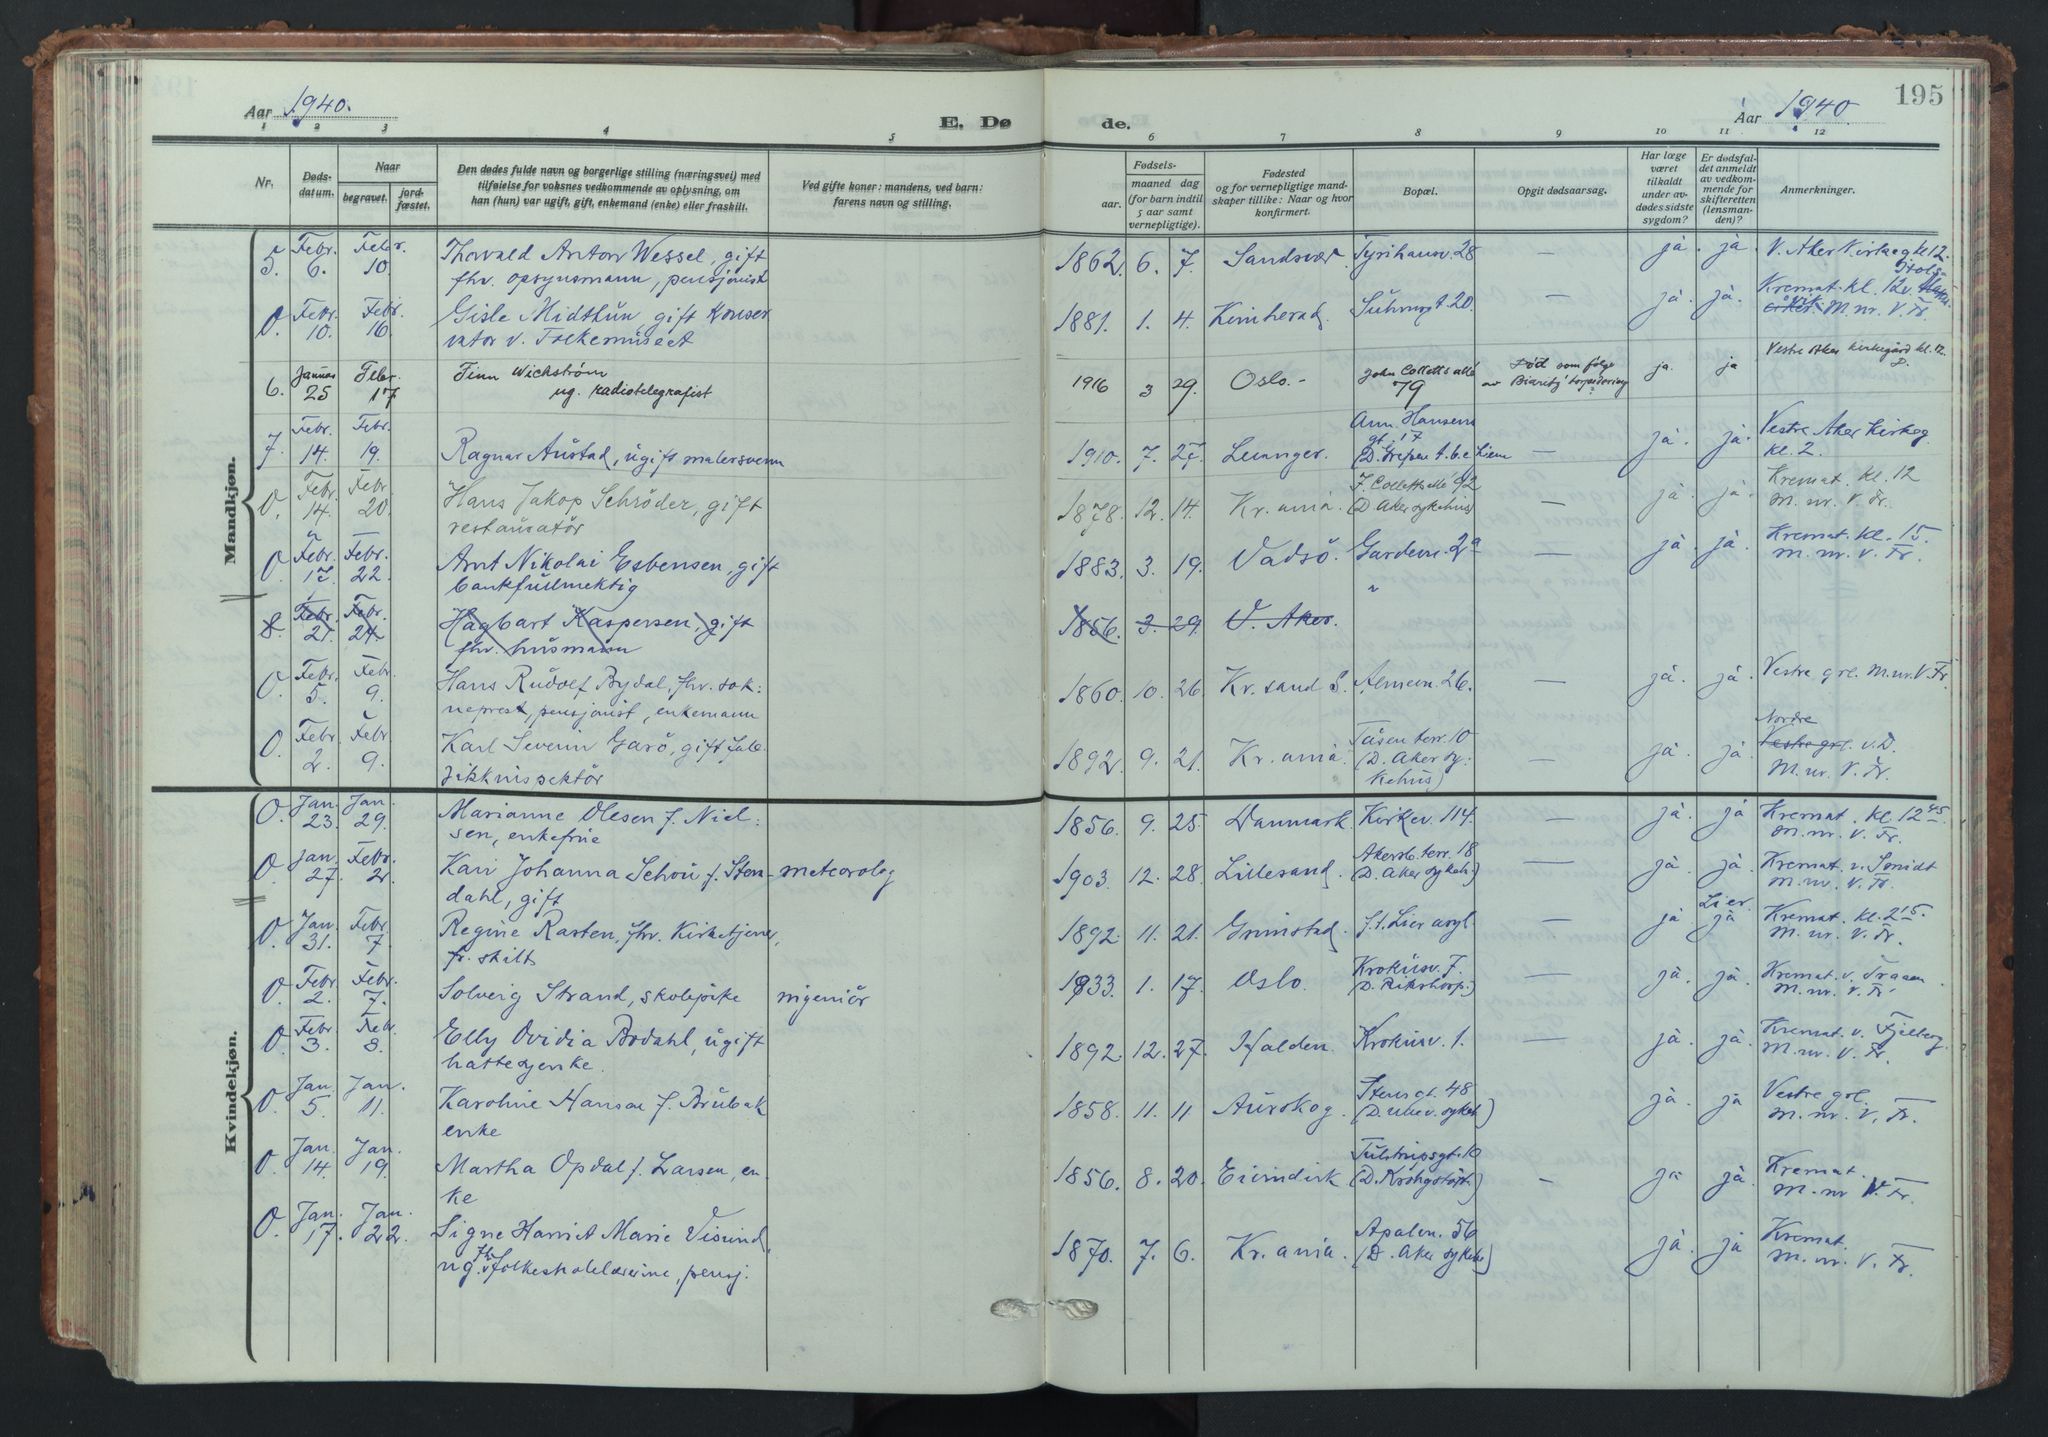 195
Aar 1940.
E. Dø
de.
Aar 1940.
1 2 3 4 5 6 7 8 9 10 11 12
Nr.
Døds-
datum.
Naar
begravet.
jord-
fæstet.
Den dødes fulde navn og borgerlige stilling (næringsvei) med
tilføielse for voksnes vedkommende av oplysning, om
han (hun) var ugift, gift, enkemand (enke) eller fraskilt.
Ved gifte koner: mandens, ved barn:
farens navn og stilling.
Fødsels-
aar.
maaned dag
(for barn indtil
5 aar samt
vernepligtige).
Fødested
og for vernepligtige mand-
skaper tillike: Naar og hvor
konfirmert.
Bopæl.
Opgit dødsaarsag.
Har læge
været
tilkaldt
under av-
dødes sidste
sygdom?
Er dødsfal-
det anmeldt
av vedkom-
mende for
skifteretten
(lensman-
den)?
Anmerkninger.
Mandkjøn.
5. Febr. 6. Febr. 10. Thorvald Anton Wessel, gift
fhv. opsynsmann, pensjonist
1862. 6. 7. Sandsvær. Tyrihansv. 28 — ja ja. V. Aker Kirkeg kl 12.
0. Febr. 10. Febr. 16. Gisle Midthun gift Konser
vator v. Folkemuseet
1881. 1. 4. Kvinherad. Suhmsgt. 20. — ja. ja. Kremat. kl. 12 v.
M. nr. V. Fr.
6. Januar 25 Febr. 17 Finn Wichstrøm
ug. radiotelegrafist
1916 3 29. Oslo.- John Colletts allé
79
Død som følge
av Biarritz' torpedering
ja. ja Vestre Aker kirkegård kl. 12.
7. Febr. 14. Febr. 19. Ragnar Austad, ugift malersvenn
1910. 7. 27. Levanger. Ann. Hansens
gt. 17
— ja. ja. Vestre Aker Kirkeg
kl. 2.
0. Febr. 14. Febr. 20. Hans Jakop Schrøder, gift
restauratør
1878. 12. 14. Kr.ania. J. Colletts allé 92
(D. Aker sykehus)
— ja. ja. Kremat. kl. 12
M. nr. V. Fr.
0. Febr. 17. Febr. 22. Arnt Nikolai Esbensen, gift
bankfullmektig
1883. 3. 19. Vadsö. Gardeve. 2a
— ja. ja. Kremat. kl. 15.
M. nr. V. Fr.
8. Febr. 21. Febr. 24. Hagbart Kaspersen, gift
fhv. husmann
1856. 3. 29. V. Aker.
0. Febr. 5. Febr. 9. Hans Rudolf Bydal, fhv. sok:
neprest, pensjonist, enkemann
1860. 10. 26. Kr.sand S. Almev. 26. — ja. ja. Vestre grl. M.nr. V. Fr.
0. Febr. 2. Febr. 9. Karl Severin Garö, gift fab:
rikkinspektör
1892. 9. 21. Kr.ania. Tåsen terr. 10
(D. Aker sy:
kehus)
— ja. ja. Nordre
Vestre grl. v. D.
M. nr. V. Fr.
Kvindekjøn.
0. Jan. 23. Jan. 29. Marianne Olesen f. Niel:
sen, enkefrue
1856. 9. 25. Danmark. Kirkev. 114. — ja. ja Kremat. kl. 12 45.
M. nr. V. Fr.
0. Jan. 27. Febr. 2. Kari Johanna Schou f. Sten-
dahl, gift
meteorolog
1903. 12. 28. Lillesand. Akersb. terr. 18
(D. Aker sykeh.)
— ja. ja. Kremat. v. Smidt
M. nr. V. Fr.
0. Jan. 31. Febr. 7. Regine Rasten, fhv. Kirketjener,
fr. skilt
1892. 11. 21. Grimstad. f.t. Lier asyl. — ja. Lier.
ja Kremat. kl. 2 15.
M. nr. V. Fr.
0. Febr. 2. Febr. 7. Solveig Strand, skolepike
ingeniör
1933. 1. 17. Oslo. Krokusv. 7.
(D. Rikshosp.)
— ja. ja. Kremat. v. Traaen.
M. nr. V. Fr.
0. Febr. 3. Febr. 8. Elly Ovidia Bodahl, ugift
hattesyerske.
1892. 12. 27. Halden. Krokusv. 1. — ja. ja. Kremat. v. Fjelberg.
M. nr. V. Fr.
0. Jan. 5. Jan. 11. Karoline Hansen f. Brubak
enke
1858. 11. 11 Aurskog. Stensgt. 48
(D. Ullev. sykeh.)
— ja. ja Vestre grl.
M. nr. V. Fr.
0. Jan. 14. Jan. 19. Martha Opdal f. Larsen, en:
ke
1856. 8. 20. Eivindvik Tullinsgt. 10
— ja ja. Kremat.
M. nr V. Fr.
0. Jan. 17. Jan. 22. Signe Harriet Marie Visund,
ug. fhv folkeskolelærerinne, pensj.
1870. 7. 6. Kr.ania. Apalv. 56
(D. Aker sykehus)
ja. ja Kremat.
M. nr. V. Fr.